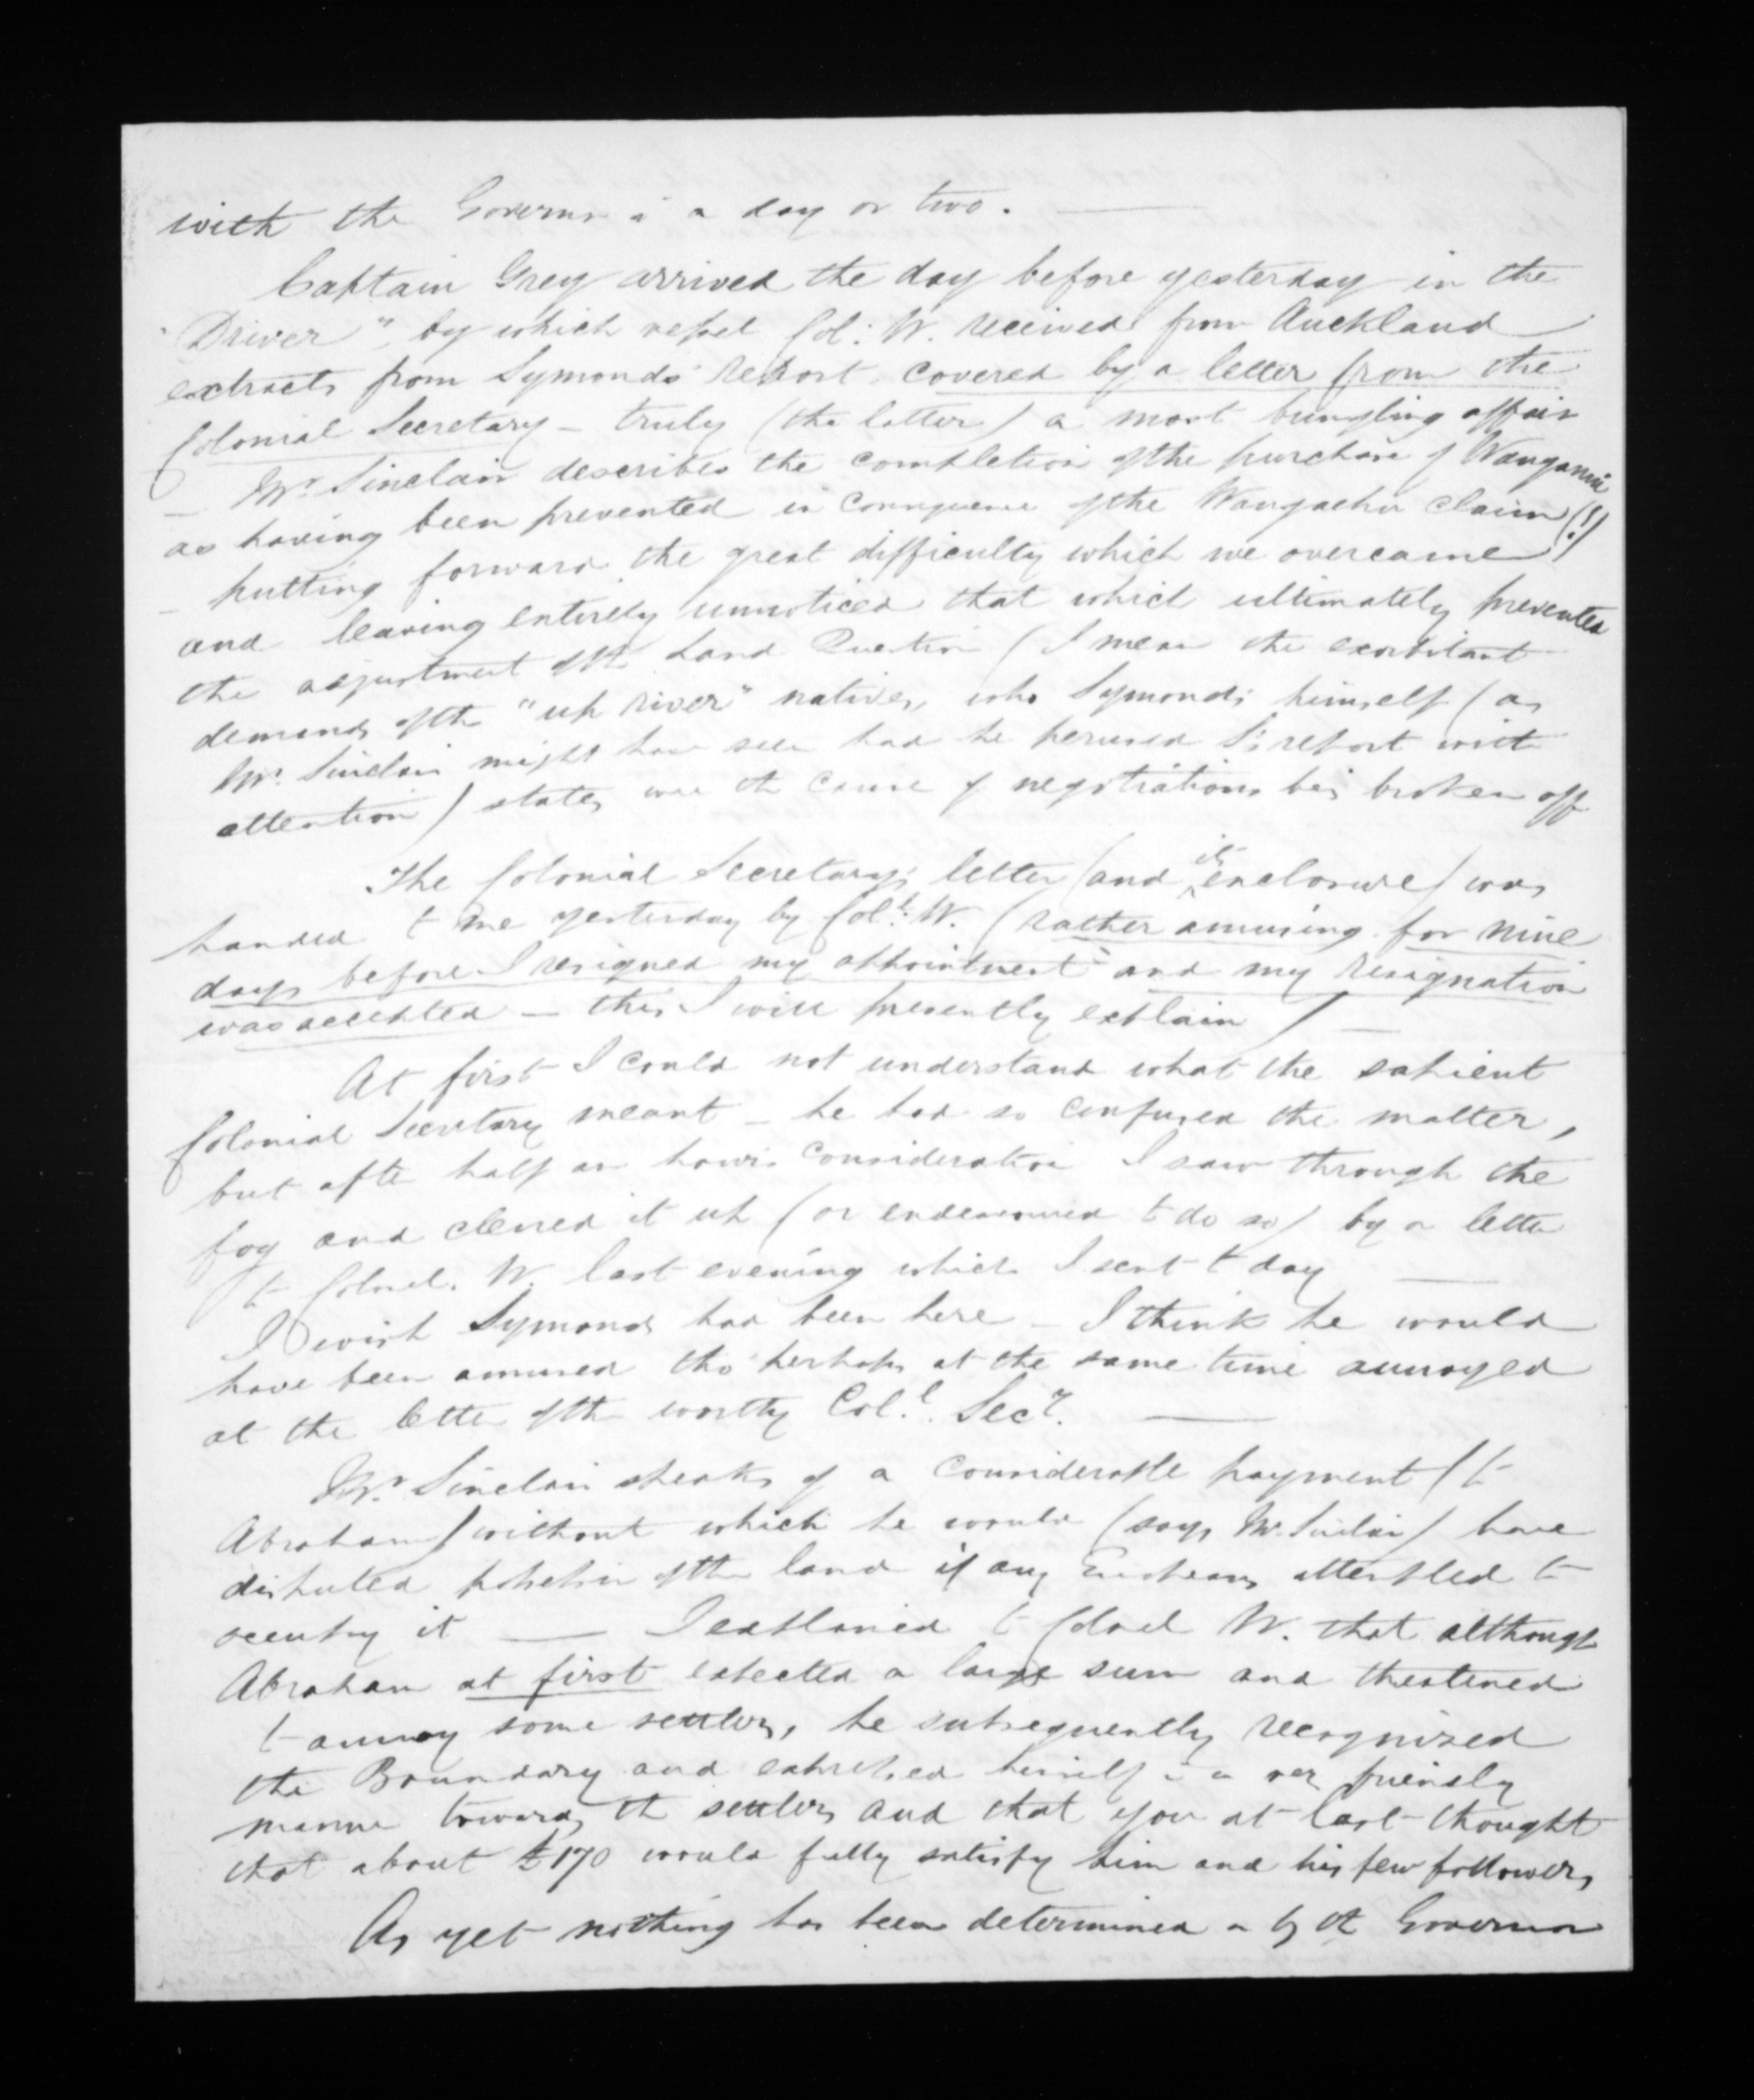 with the Governor in a day or two. —
Captain Grey arrived the day before yesterday in the
"Driver", by which vessel Col: W. received from Auckland
extracts from Symonds' report, covered by a letter from the
Colonial Secretary – truly (the latter) a most bungling affair
– Mr. Sinclair describes the completion of the purchase of Wanganui
as having been prevented in consequence of the Wangaehu claim (!)
– putting forward the great difficulty which we overcame
and leaving entirely unnoticed that which ultimately prevented
the adjustment of the Land Question (I mean the exorbitant
demands of the "up river" natives, who Symonds himself (as
Mr. Sinclair might have seen had he perused S's report with
attention) states was the cause of negotiations being broken off
The Colonial Secretary's letter (and its enclosure) was
handed to me yesterday by Col: W. (rather amusing for nine
days before I resigned my appointment and my resignation
was accepted – this I will presently explain) —
At first I could not understand what the sapient
Colonial Secretary meant – he had so confused the matter,
but after half an hour's consideration I saw through the
fog and cleared it up (or endeavoured to do so) by a letter
to Colonel. W. last evening which I sent to day —
I wish Symonds had been here – I think he would
have been amused tho' perhaps at the same time annoyed
at the letter of the worthy Col.l Sec.y —
Mr. Sinclair speaks of a considerable payment (to
Abraham) without which he would (says Mr. Sinclair) have
disputed possession of the land if any Europeans attempted to
occupy it — I explained to Colonel W. that although
Abraham at first expected a large sum and threatened
to annoy some settlers, he subsequently recognized
the Boundary and expressed himself in a very friendly
manner towards the settlers and that you at last thought
that about £170 would fully satisfy him and his few followers
As yet nothing has been determined on by the Governor